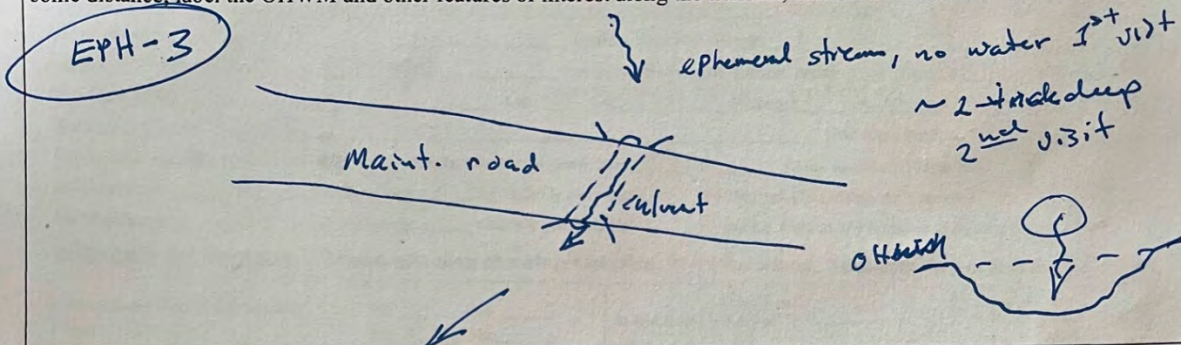 EPH-3
ephemeral stream, no water 1st visit
~ 2 deep
2nd visit
Maint. road
culvert